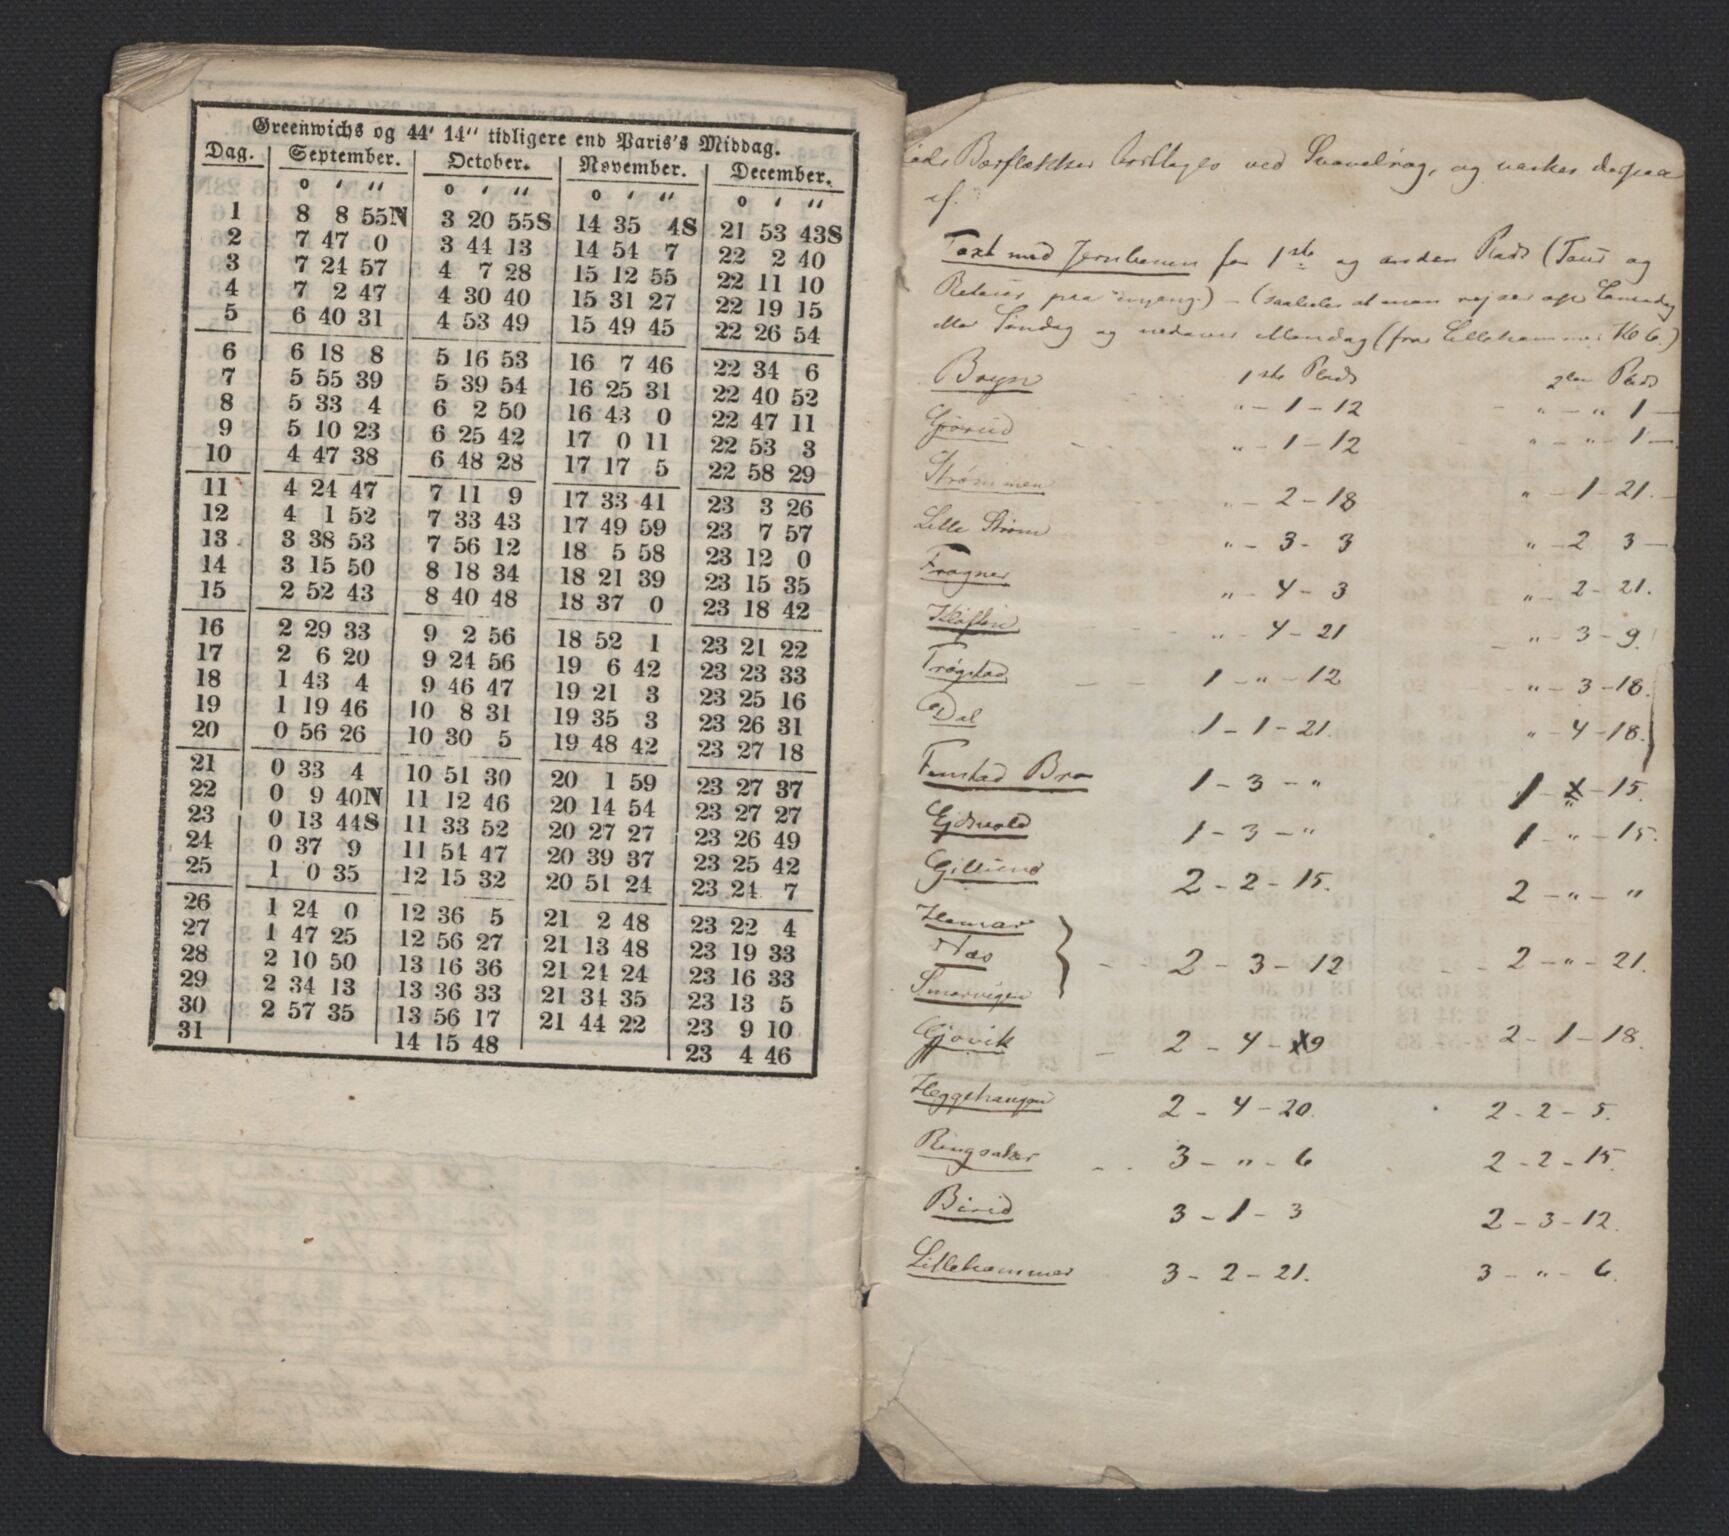 Greenwichs og 44' 14" tidligere end Paris's Middag.
Dag. September. October. November. December.
o ' " o ' " o ' " o ' "
1 8 8 55N 3 20 55S 14 35 4S 21 53 43S
2 7 47 0 3 44 13 14 54 7 22 2 40
3 7 24 57 4 7 28 15 12 55 22 11 10
4 7 2 47 4 30 40 15 31 27 22 19 15
5 6 40 31 4 53 49 15 49 45 22 26 54
6 6 18 8 5 16 53 16 7 46 22 34 6
7 5 55 39 5 39 54 16 25 31 22 40 52
8 5 33 4 6 2 50 16 43 0 22 47 11
9 5 10 23 6 25 42 17 0 11 22 53 3
10 4 47 38 6 48 28 17 17 5 22 58 29
11 4 24 47 7 11 9 17 33 41 23 3 26
12 4 1 52 7 33 43 17 49 59 23 7 57
13 3 38 53 7 56 12 18 5 58 23 12 0
14 3 15 50 8 18 34 18 21 39 23 15 35
15 2 52 43 8 40 48 18 37 0 23 18 42
16 2 29 33 9 2 56 18 52 1 23 21 22
17 2 6 20 9 24 56 19 6 42 23 23 33
18 1 43 4 9 46 47 19 21 3 23 25 16
19 1 19 46 10 8 31 19 35 3 23 26 31
20 0 56 26 10 30 5 19 48 42 23 27 18
21 0 33 4 10 51 30 20 1 59 23 27 37
22 0 9 40N 11 12 46 20 14 54 23 27 27
23 0 13 44S 11 33 52 20 27 27 23 26 49
24 0 37 9 11 54 47 20 39 37 23 25 42
25 1 0 35 12 15 32 20 51 24 23 24 7
26 1 24 0 12 36 5 21 2 48 23 22 4
27 1 47 25 12 56 27 21 13 48 23 19 33
28 2 10 50 13 16 36 21 24 24 23 16 33
29 2 34 13 13 36 33 21 34 35 23 13 5
30 2 57 35 13 56 17 21 44 22 23 9 10
31 14 15 48 23 4 46
Bærflækker borttages ved Svovelrøg, og vaskes derpaa
af.
Taxt med Jernbanen for 1ste og anden Plads (Tour og
Retour paa engang) - (saaledes at man rejser op Lørredag
eller Søndag og nedover Mandag (fra Lillehammer Kl 6.)
Bryn 1ste Plads 2den Plads
" - 1 - 12 " - " 1 -
Grorud " - 1 - 12 " - " - 1 -
Strømmen " - 2 - 18 " - 1 - 21. -
Lille Strøm " - 3 - 3 " - 2 3 -
Frogner " - 4 - 3 " - 2 - 21.
Kløften " - 4 - 21 " - 3 - 9
Trøgstad 1 - " - 12 " - 3 - 18.
Dal 1 - 1 - 21. " - 4 - 18.
Finstad Bro 1 - 3 - " 1 - " - 15.
Ejdsvold 1 - 3 - " 1 - " - 15.
Gillund 2 - 2 - 15. 2 - " - "
Hamar
Næs 2 - 3 - 12 2 - " - 21.
Smørvigen
Gjøvik 2 - 4 - 9 2 - 1 - 18.
Heggshaugen 2 - 4 - 20. 2 - 2 - 5.
Ringsaker 3 - " - 6 2 - 2 - 15.
Birid 3 - 1 - 3 2 - 3 - 12.
Lillehammer 3 - 2 - 21. 3 - " - 6.